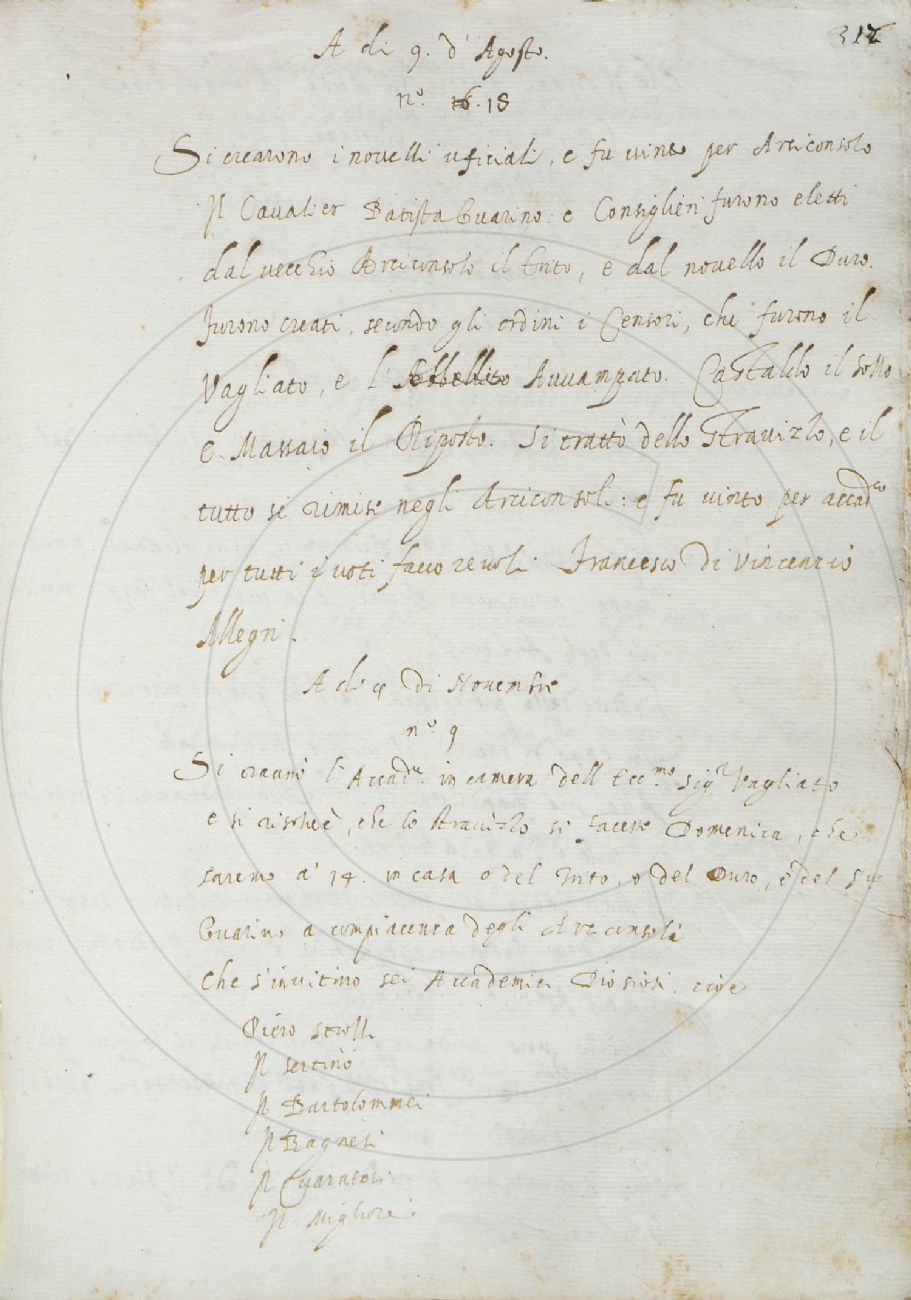 317
A di 9. d'Agosto.
n.º 16. 18
Si crearono i novelli uficiali, e fu vinto per Arciconsolo
Il Cavalier Batista Guarino: e Consiglieri furono eletti
dal vecchio Arciconsolo il Trito, e dal novello il Duro.
Furono creati, secondo gli ordini i Censori, che furono il
Vagliato, e l' Abbellito Avvampato. Castaldo il Sollo
E Massaio il Riposto. Si trattò dello Stravizzo, e il
tutto si rimise negli Arciconsoli: e fu vinto per accad.co
per tutti i voti favorevoli Francesco di Vincenzio
Allegri.
A di 4 di Novembre
n.º 9
Si raunò l'Accad.a in camera dell'Ecc.mo Sig.r Vagliato
e si risolvè, che lo stravizzo si facesse Domenica, che
saremo a' 14. in casa o del Trito, o del Duro, e del
Guarino a compiacenza degli Arciconsoli
Che s'invitino sei Accademici cioe
Piero
Il
Il Bartolommei
Il Ragnesi
Il Guaratesi
Il Migliore